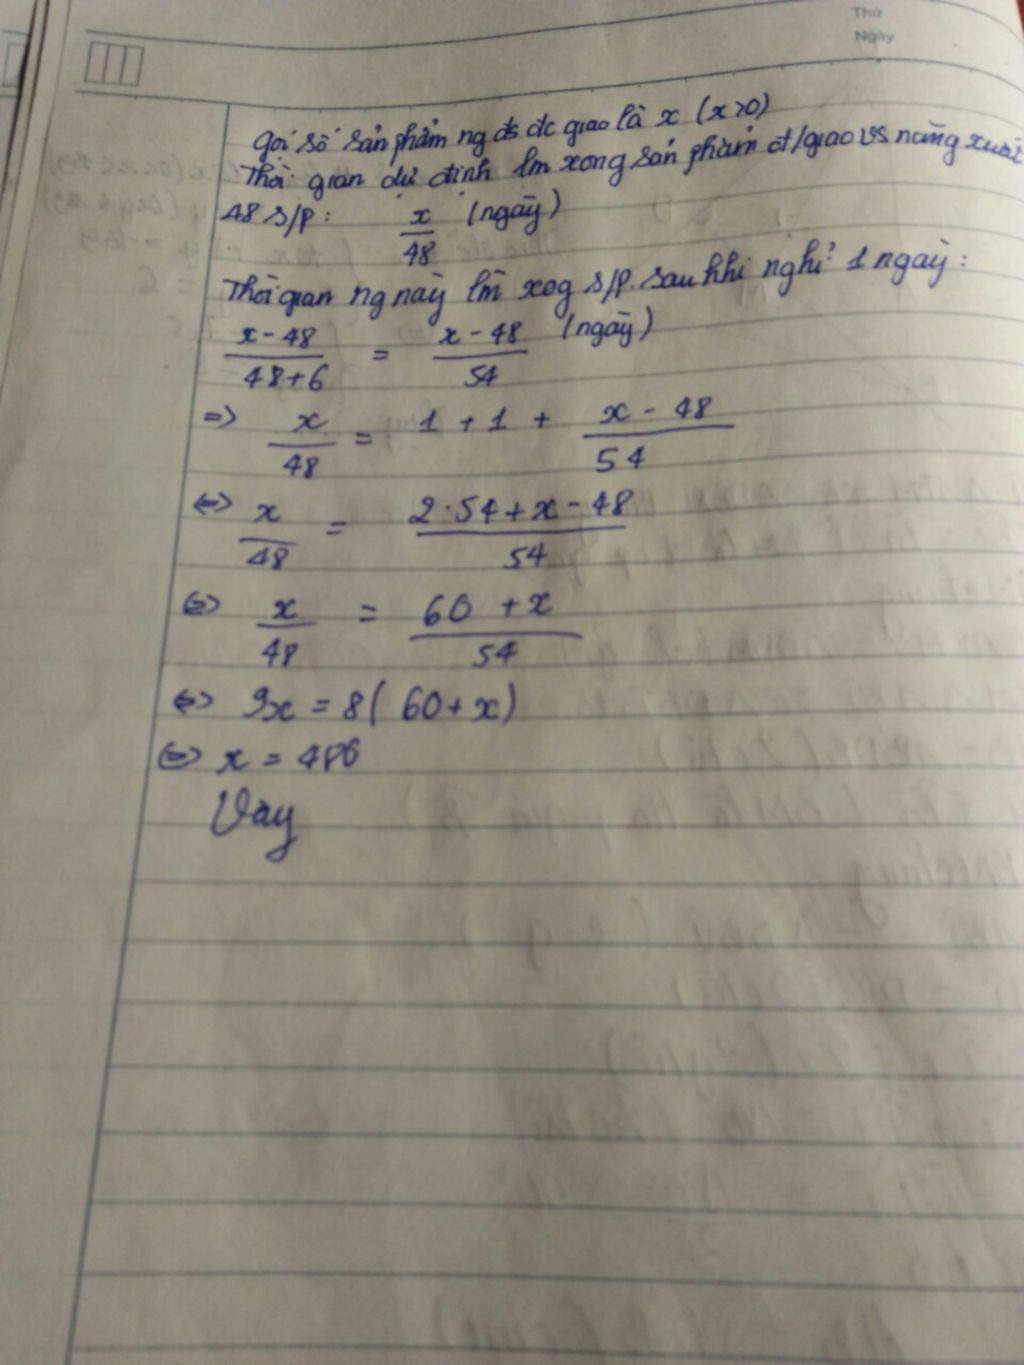 Thứ
Ngày
gọi số sản phẩm ng đó đc giao là x (x>0)
Thời gian dự định lm xong sản phẩm đ/giao vs năng xuất
48 s/p: x/48 (ngày)
Thời gian ng này lm xog s/p sau khi nghỉ 1 ngày:
x-48/48+6 = x-48/54 (ngày)
=> x/48 = 1 + 1 + x-48/54
<=> x/48 = 2.54+x-48/54
<=> x/48 = 60+x/54
<=> 9x = 8(60+x)
<=> x = 480
Vậy